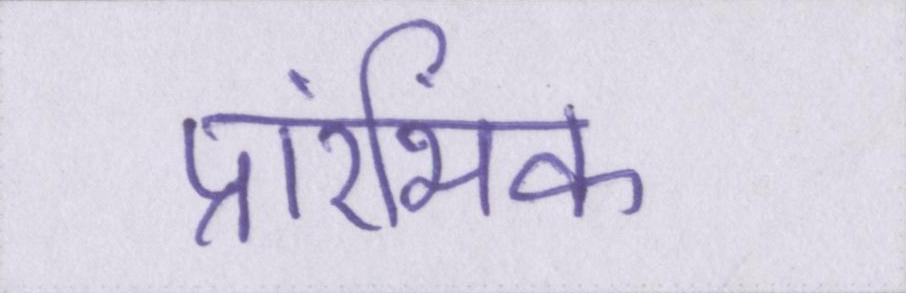 प्रांरभिंक